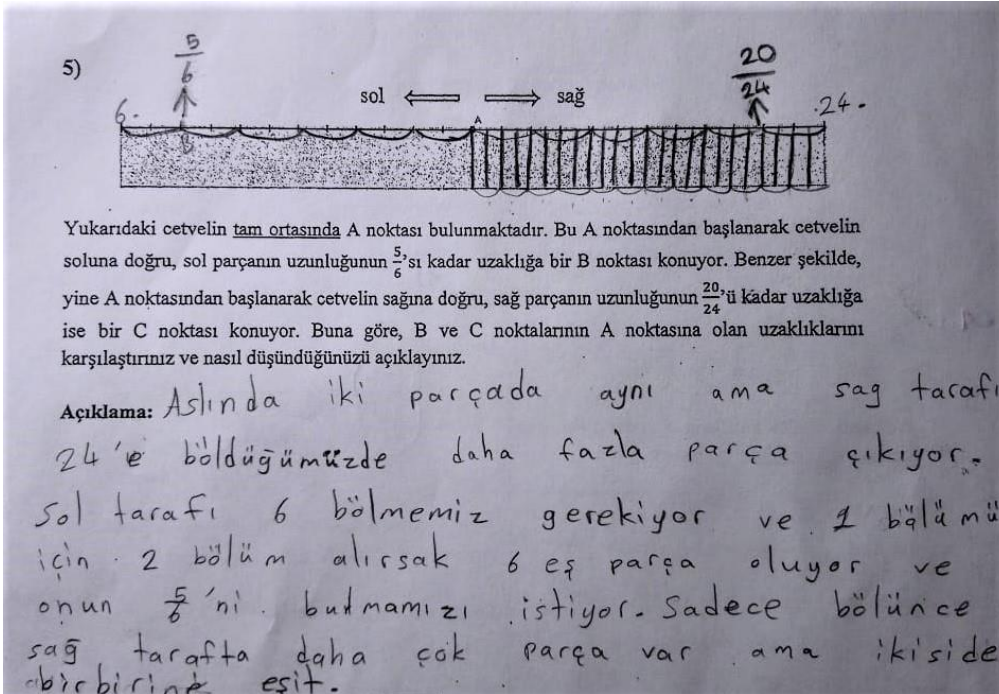 5)
5/6
20/24
6.
sol
sağ
.24.
A
B
Yukarıdaki cetvelin tam ortasında A noktası bulunmaktadır. Bu A noktasından başlanarak cetvelin
soluna doğru, sol parçanın uzunluğunun 5/6'sı kadar uzaklığa bir B noktası konuyor. Benzer şekilde,
yine A noktasından başlanarak cetvelin sağına doğru, sağ parçanın uzunluğunun 20/24'ü kadar uzaklığa
ise bir C noktası konuyor. Buna göre, B ve C noktalarının A noktasına olan uzaklıklarını
karşılaştırınız ve nasıl düşündüğünüzü açıklayınız.
Açıklama: Aslında iki parçada aynı ama sag tarafı
24'e böldüğümüzde daha fazla parça çıkıyor.
Sol tarafı 6 bölmemiz gerekiyor ve 1 bölümü
için 2 bölüm alırsak 6 eş parça oluyor ve
onun 5/6'ni bulmamızı istiyor. Sadece bölünce
sağ tarafta daha çok parça var ama ikiside
birbirine eşit.